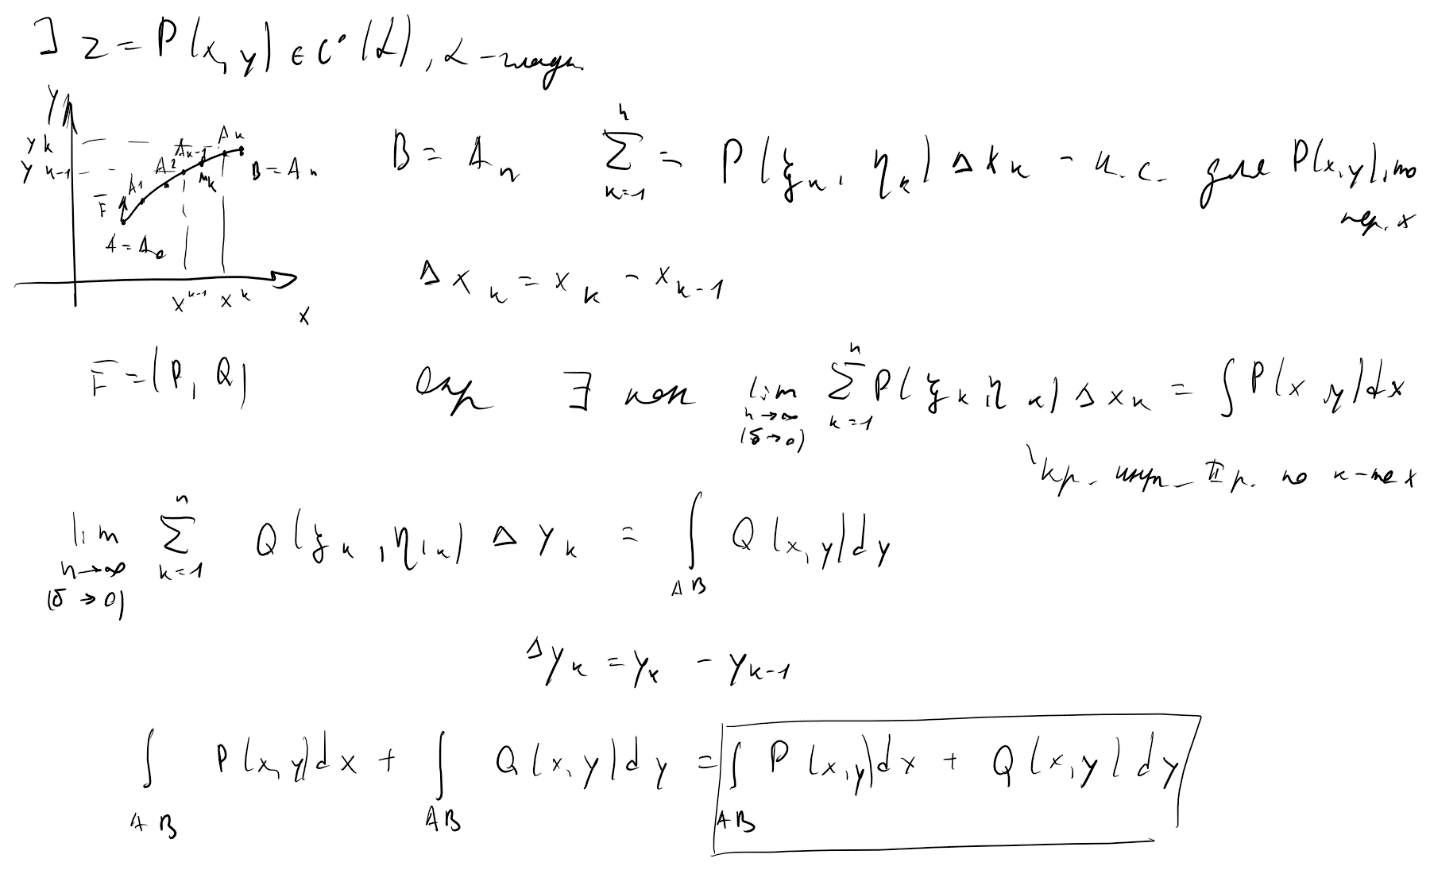 ∃ z = P(x, y) ∈ C°(L), L - гладк.
Y
y k
y k-1
A1 A2 Ak-1 Ak
Mk
B = An
F
A = A0
x k-1 x k
X
B = An ∑ k=1 n = P(ξk, ηk) Δxk - и.с. для P(x, y), по пер. x
Δxk = xk - xk-1
F = (P, Q)
опр ∃ кон lim n→∞ (δ→0) ∑ k=1 n P(ξk, ηk) Δxk = ∫ P(x y)dx
кр. инт. II р. по к-те x
lim n→∞ (δ→0) ∑ k=1 n Q(ξk, ηk) Δyk = ∫ AB Q(x, y)dy
Δyk = yk - yk-1
∫ AB P(x, y)dx + ∫ AB Q(x, y)dy = ∫ AB P(x, y)dx + Q(x, y)dy